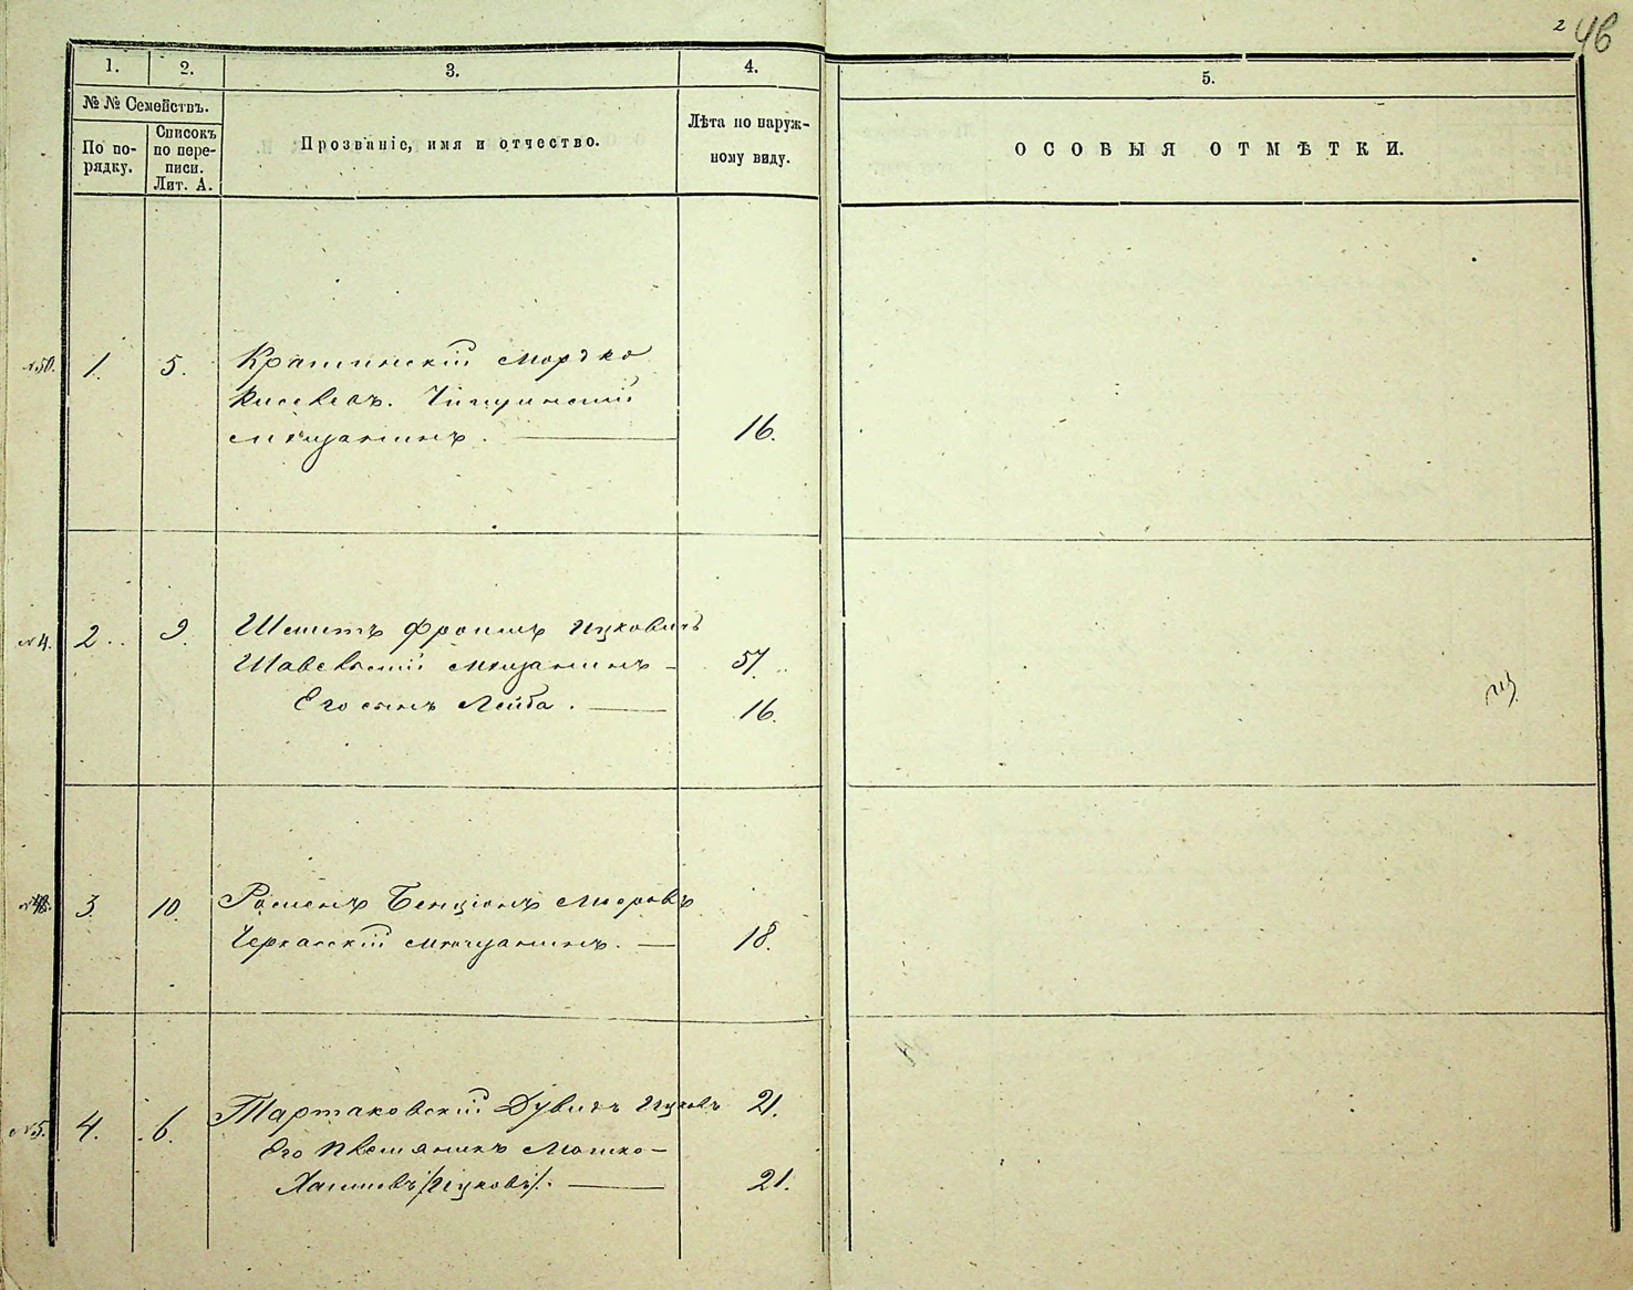 2 46
1. 2. 3. 4. 5.
№ № Семействъ.
По по-
рядку.
Списокъ
по пере-
писи.
Лит. А.
Прозваніе, имя и отчество.
Лѣта по наруж-
ному виду.
ОСОБЫЯ ОТМѢТКИ.
№50. 1. 5. Мордко
мѣщанинъ. 16.
№4. 2. 9. Шмитъ Фроимъ Ицковичъ
Шавельскій мѣщанинъ 57.
Его сынъ Лейба. 16.
3. 10. Бенціонъ Мееровъ
Черкасскій мѣщанинъ. 18.
№5. 4. 6. Тартаковскій Дувидъ Ицковъ 21.
Его племяникъ Мошко-
Хаимовъ /Ицковъ/. 21.